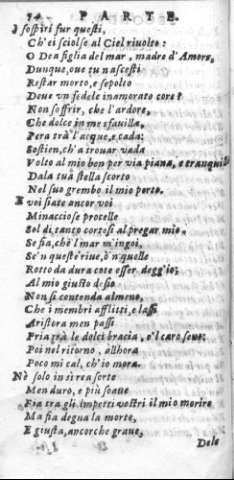 74 PARTE.
I sospiri fur questi,
Ch'ei sciolse al Ciel riuolto:
O Dea figlia del mar, madre d'Amore,
Dunque, oue tu nascesti
Restar morto, e sepolto
Deue vn fedele inamorato core?
Non soffrir, che l'ardore,
Che dolce in me sfauilla,
Pera trà l'acque, e cada:
Sostien, ch'à trouar vada
Volto al mio ben per via piana, e tranquilla
Da la tua stella scorto
Nel suo grembo il mio porto.
E voi siate ancor voi
Minacciose procelle
Sol di tanto cortesi al pregar mio.
Se fia, che'l mar m'ingoi,
Se'n queste riue, ò'n quelle
Rotto da dura cote esser degg'io;
Al mio giusto desio
Non si contenda almeno,
Che i membri afflitti, e lassi
Aristora men passi
Pria trà le dolci braccia, o'l caro seno;
Poi nel ritorno, allhora
Poco mi cal, ch'io mora.
Nè solo in sì rea sorte
Men duro, e più soaue
Fia tra gli impeti vostri il mio morire
Ma fia degna la morte,
E giusta, ancorche graue,
Dele